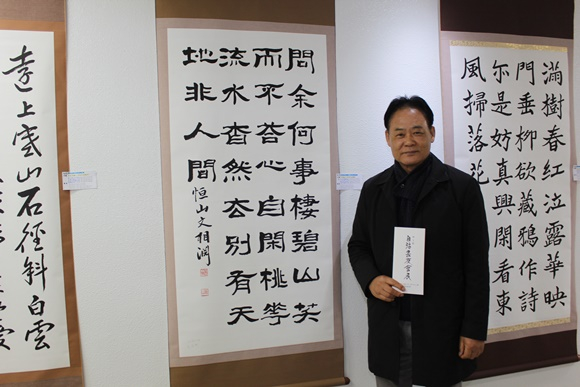 滿樹春紅泣露華映
門垂柳欲藏鴉作詩
尓是妨真興閑看東
風掃落花
問余何事棲碧山笑
而不荅心自閑桃華
流水杳然去別有天
地非人間 恒山文相潤
遠上寒山石徑斜白雲